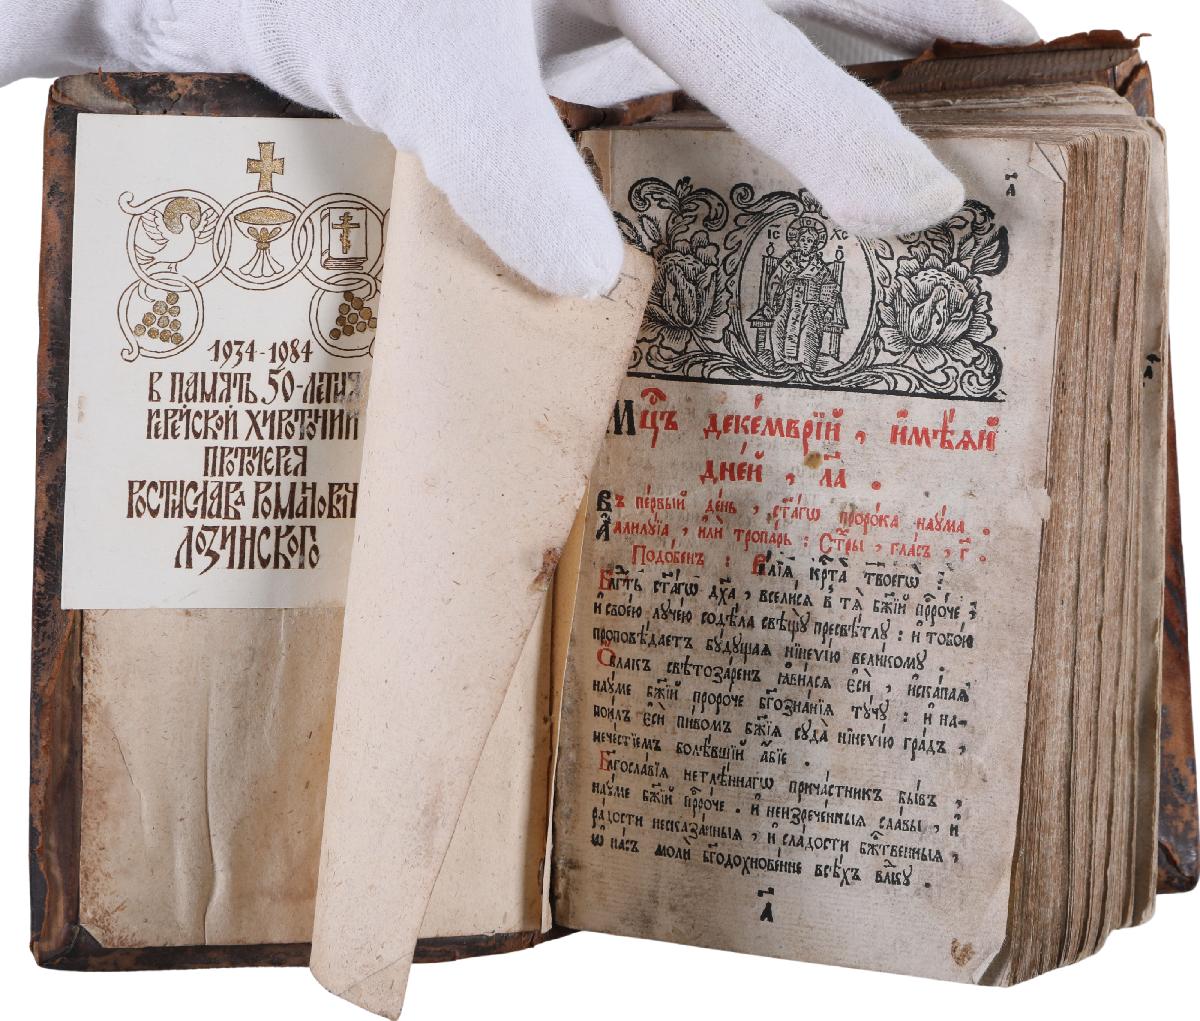 1934-1984
В ПАМЯТЬ 50-ЛЕТИЯ
ИЕРЕЙСКОЙ ХИРОТОНИИ
ПРОТОИЕРЕЯ
РОСТИСЛАВА РОМАНОВИЧ
ЛОЗИНСКОГО
а҃
І҃С Х҃С
Мцⷭ҇ъ деке́мврїй , и҆мѣ́ѧй
дне́й , л҃а .
Въ пе́рвый де́нь , ст҃а́гѡ проро́ка нау́ма .
А҆ллилу́їа , и҆лѝ тропа́рь : Стⷯры , гла́съ , г҃ .
Подо́бенъ : Є҆ли́ꙗ крⷭ҇та̀ твоегѡ̀ :
Блгⷣть ст҃а́гѡ дх҃а , всели́сѧ в тѧ̀ бж҃їй прⷪ҇ро́че ;
и҆ свое́ю луче́ю содѣ́ла свѣщꙋ̀ пресвѣ́тлꙋ : и҆ тобо́ю
проповѣ́даетъ бꙋ́дꙋщаѧ нїнеѵі́ю вели́комꙋ .
Ѻ҆́блакъ свѣтоза́ренъ ꙗ҆ви́лсѧ є҆сѝ , и҆ска́паѧ
нау́ме бж҃їй проро́че бг҃озна́нїѧ тꙋ́чꙋ : и҆ на-
пои́лъ є҆сѝ пи́вомъ бж҃їѧ сꙋда̀ нїнеѵі́ю гра́дъ ,
нече́стїемъ болѣ́вшїй а҆́бїе .
Бл҃гослове́нїѧ нетлѣ́ннагѡ прича́стникъ бы́въ ,
нау́ме бж҃їй прⷪ҇ро́че . и҆ неизрече́нныѧ сла́вы , и҆
ра́дости несказа́нныѧ , и҆ сла́дости бж҃твенныѧ ,
ѡ҆ на́съ молѝ бг҃одхнове́нне всѣ́хъ влⷣкꙋ .
а҃